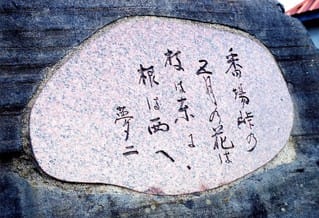 番場峠の
五月の花は
枝は東に
根は西へ
夢二